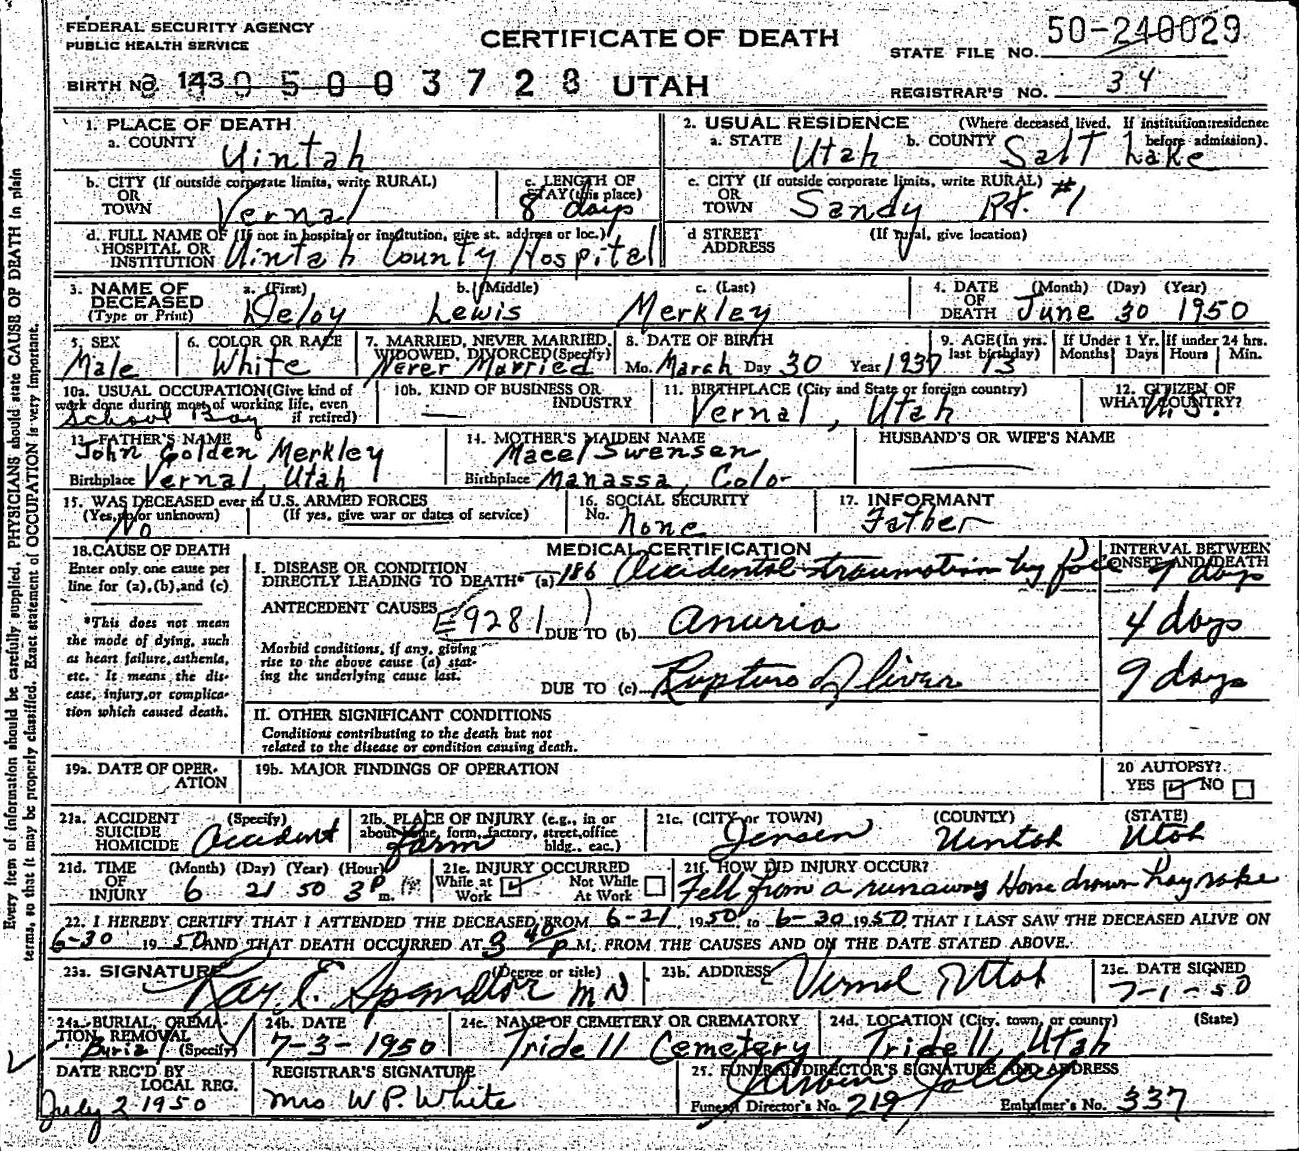 FEDERAL SECURITY AGENCY
PUBLIC HEALTH SERVICE
CERTIFICATE OF DEATH
STATE FILE NO. 50-240029
BIRTH NO. 143 0 5 0 0 0 3 7 2 8 UTAH
REGISTRAR'S NO. 34
1. PLACE OF DEATH
a. COUNTY Uintah
2. USUAL RESIDENCE (Where deceased lived. If institution: residence before admission).
a. STATE Utah b. COUNTY Salt Lake
b. CITY (If outside corporate limits, write RURAL) OR TOWN Vernal
c. LENGTH OF STAY (this place) 8 days
c. CITY (If outside corporate limits, write RURAL) OR TOWN Sandy Rt. #1
d. FULL NAME OF (If not in hospital or institution, give st. address or loc.) HOSPITAL OR INSTITUTION Uintah County Hospital
d STREET ADDRESS (If rural, give location)
3. NAME OF DECEASED (Type or Print) a. (First) Deloy b. (Middle) Lewis c. (Last) Merkley
4. DATE OF DEATH (Month) (Day) (Year) June 30 1950
5. SEX Male
6. COLOR OR RACE White
7. MARRIED, NEVER MARRIED, WIDOWED, DIVORCED (Specify) Never Married
8. DATE OF BIRTH Mo. March Day 30 Year 1937
9. AGE (In yrs. last birthday) 13
If Under 1 Yr. Months Days
If under 24 hrs. Hours Min.
10a. USUAL OCCUPATION (Give kind of work done during most of working life, even if retired) School Boy
10b. KIND OF BUSINESS OR INDUSTRY —
11. BIRTHPLACE (City and State or foreign country) Vernal, Utah
12. CITIZEN OF WHAT COUNTRY? U.S.
13. FATHER'S NAME John Golden Merkley
Birthplace Vernal, Utah
14. MOTHER'S MAIDEN NAME Macel Swensen
Birthplace Manassa, Colo-
HUSBAND'S OR WIFE'S NAME
15. WAS DECEASED ever in U.S. ARMED FORCES (Yes, no or unknown) No (If yes, give war or dates of service)
16. SOCIAL SECURITY No. None
17. INFORMANT Father
18. CAUSE OF DEATH
Enter only one cause per line for (a), (b), and (c)
*This does not mean the mode of dying, such as heart failure, asthenia, etc. It means the disease, injury, or complication which caused death.
MEDICAL CERTIFICATION
INTERVAL BETWEEN ONSET AND DEATH
I. DISEASE OR CONDITION DIRECTLY LEADING TO DEATH* (a) 186 Accidental traumation by 9 days
ANTECEDENT CAUSES E9281 DUE TO (b) Anuria 4 days
Morbid conditions, if any, giving rise to the above cause (a) stating the underlying cause last.
DUE TO (c) Rupture of liver 9 days
II. OTHER SIGNIFICANT CONDITIONS
Conditions contributing to the death but not related to the disease or condition causing death.
19a. DATE OF OPERATION
19b. MAJOR FINDINGS OF OPERATION
20 AUTOPSY? YES NO
21a. ACCIDENT SUICIDE HOMICIDE (Specify) Accident
21b. PLACE OF INJURY (e.g., in or about home, form, factory, street, office bldg., eac.) Farm
21c. (CITY or TOWN) (COUNTY) (STATE) Jensen Uintah Utah
21d. TIME OF INJURY (Month) (Day) (Year) (Hour) 6 21 50 3 P m.
21e. INJURY OCCURRED While at Work Not While At Work
21f. HOW DID INJURY OCCUR? Fell from a runaway Horse drawn hay rake
22. I HEREBY CERTIFY THAT I ATTENDED THE DECEASED FROM 6-21, 1950 to 6-30 1950, THAT I LAST SAW THE DECEASED ALIVE ON
6-30 1950 AND THAT DEATH OCCURRED AT 3 40 P M. FROM THE CAUSES AND ON THE DATE STATED ABOVE.
23a. SIGNATURE (Degree or title) Ray E. Spendlove M D
23b. ADDRESS Vernal Utah
23c. DATE SIGNED 7-1-50
24a. BURIAL, CREMATION REMOVAL (Specify) Burial
24b. DATE 7-3-1950
24c. NAME OF CEMETERY OR CREMATORY Tridell Cemetery
24d. LOCATION (City, town, or county) (State) Tridell, Utah
DATE REC'D BY LOCAL REG. July 2 1950
REGISTRAR'S SIGNATURE Mrs W P. White
25. FUNERAL DIRECTOR'S SIGNATURE AND ADDRESS
Funeral Director's No. 219 Embalmer's No. 337
Every item of information should be carefully supplied. PHYSICIANS should state CAUSE OF DEATH in plain
terms, so that it may be properly classified. Exact statement of OCCUPATION is very important.